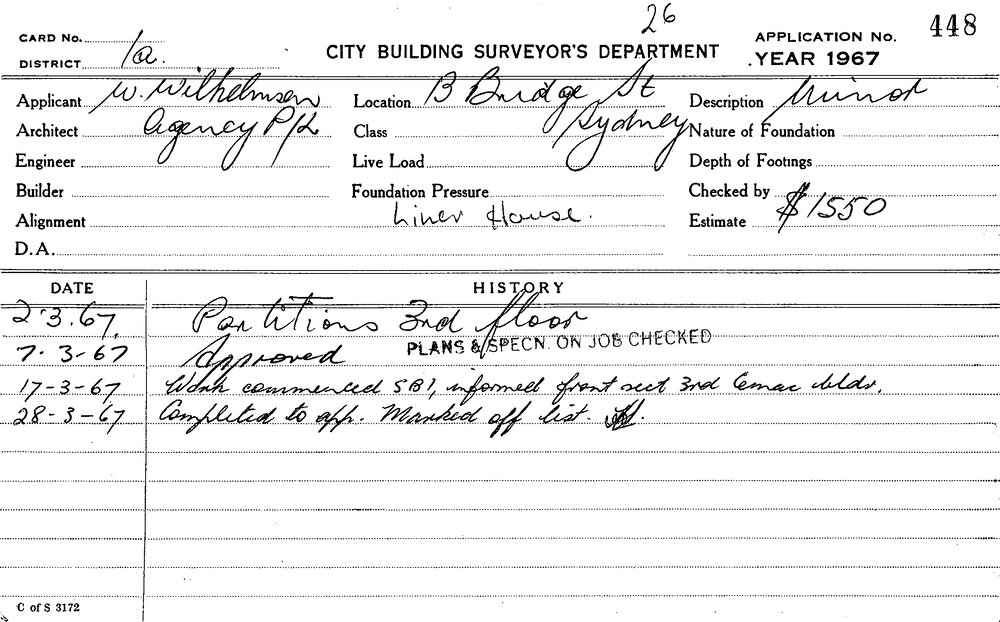 26
CARD No. CITY BUILDING SURVEYOR'S DEPARTMENT APPLICATION No. 448
DISTRICT 1a. YEAR 1967
Applicant W. Wilhelmsen Location B Bridge St Description Minor
Architect Agency P/L Class Sydney Nature of Foundation
Engineer Live Load Depth of Footings
Builder Foundation Pressure Checked by
Alignment Liner House. Estimate $1550
D.A.
DATE HISTORY
2.3.67. Partitions 3rd floor
7-3-67 Approved PLANS & SPECN. ON JOB CHECKED
17-3-67 Work commenced informed front sect 3rd
28-3-67 Completed to app. Marked off list.
C of S 3172